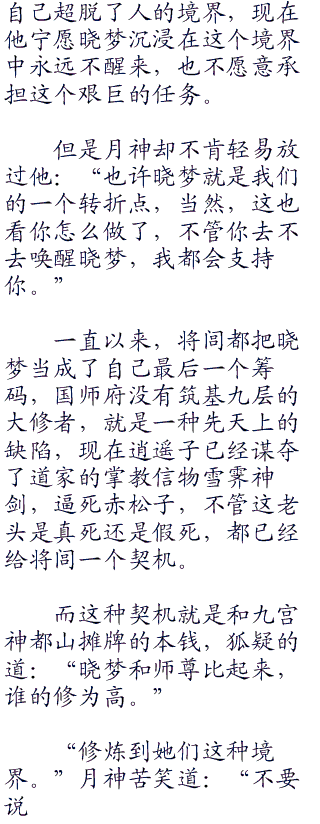 自己超脱了人的境界，现在
他宁愿晓梦沉浸在这个境界
中永远不醒来，也不愿意承
担这个艰巨的任务。
但是月神却不肯轻易放
过他：“也许晓梦就是我们
的一个转折点，当然，这也
看你怎么做了，不管你去不
去唤醒晓梦，我都会支持
你。”
一直以来，将闾都把晓
梦当成了自己最后一个筹
码，国师府没有筑基九层的
大修者，就是一种先天上的
缺陷，现在逍遥子已经谋夺
了道家的掌教信物雪霁神
剑，逼死赤松子，不管这老
头是真死还是假死，都已经
给将闾一个契机。
而这种契机就是和九宫
神都山摊牌的本钱，狐疑的
道：“晓梦和师尊比起来，
谁的修为高。”
“修炼到她们这种境
界。”月神苦笑道：“不要
说